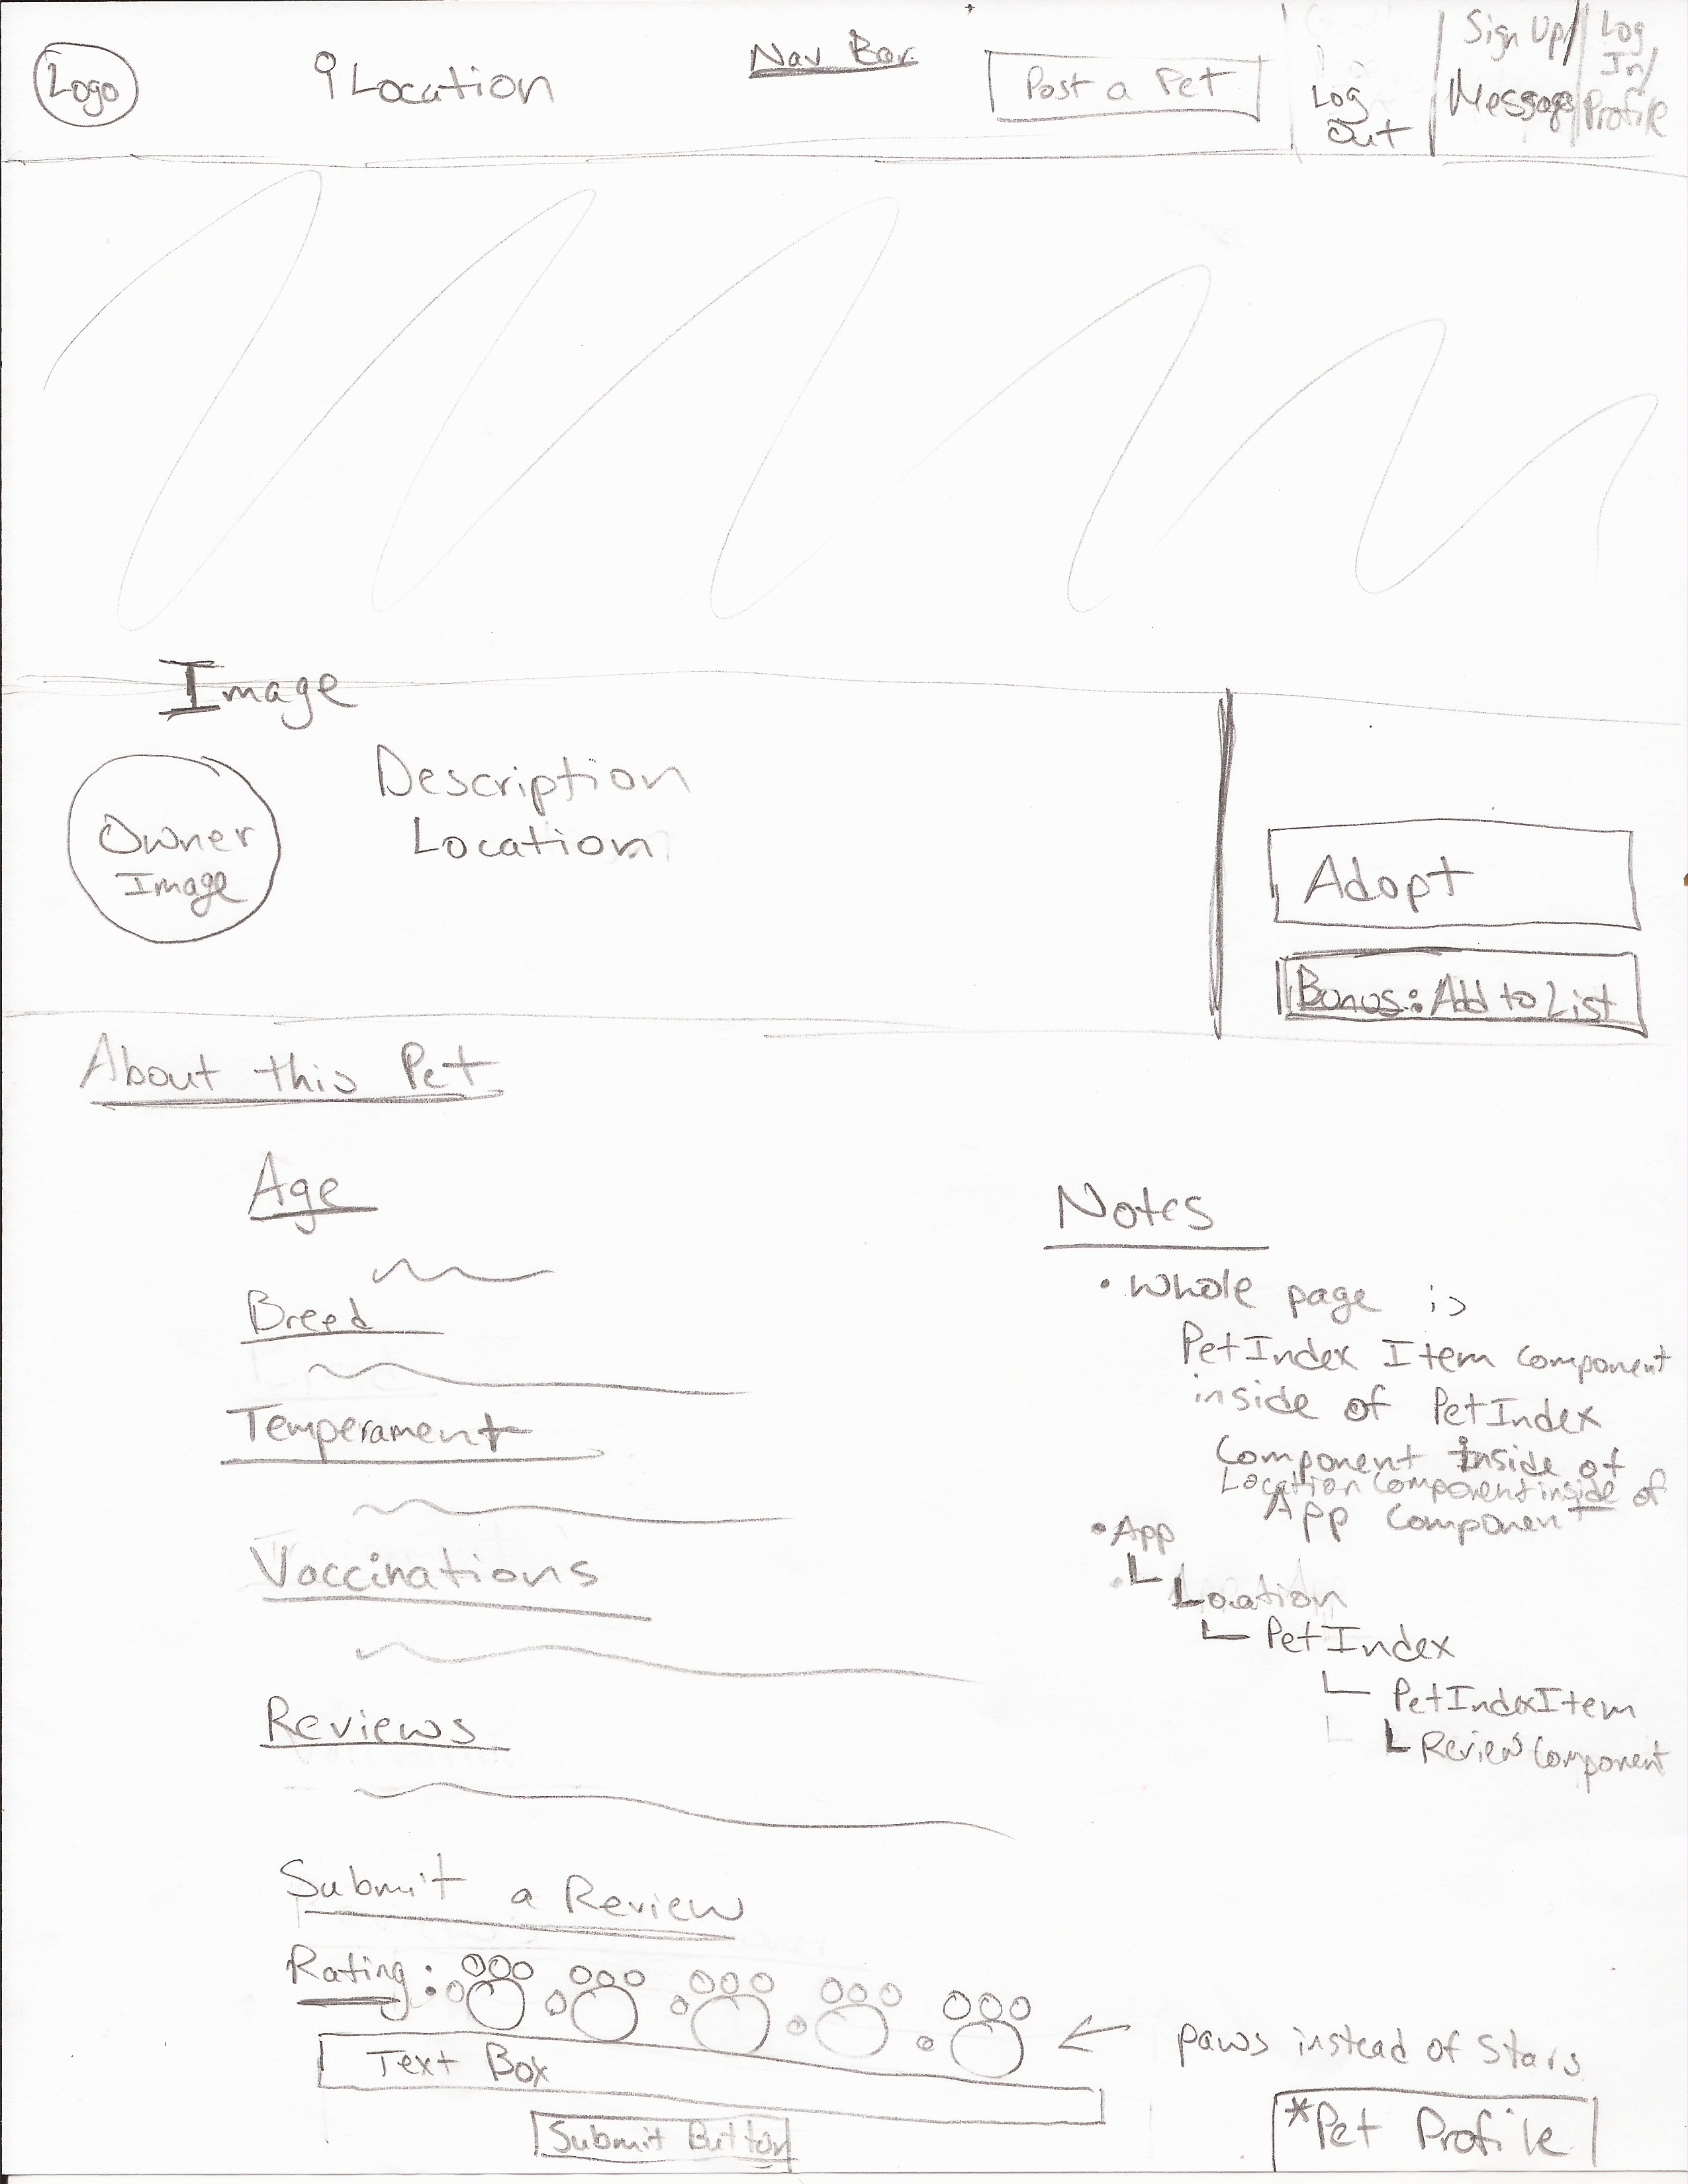 Logo
Location
Nav Bar
Post a Pet
Log
Out
Sign Up/
Messages
Log
In/
Profile
Image
Owner
Image
Description
Location
Adopt
Bonus: Add to List
About this Pet
Age
Breed
Temperament
Vaccinations
Reviews
Submit a Review
Rating:
Text Box
Submit Button
Notes
• Whole page is
PetIndex Item component
inside of PetIndex
Component inside of
Location Component inside of
App Component
• App
Location
PetIndex
PetIndexItem
Review Component
paws instead of stars
*Pet Profile